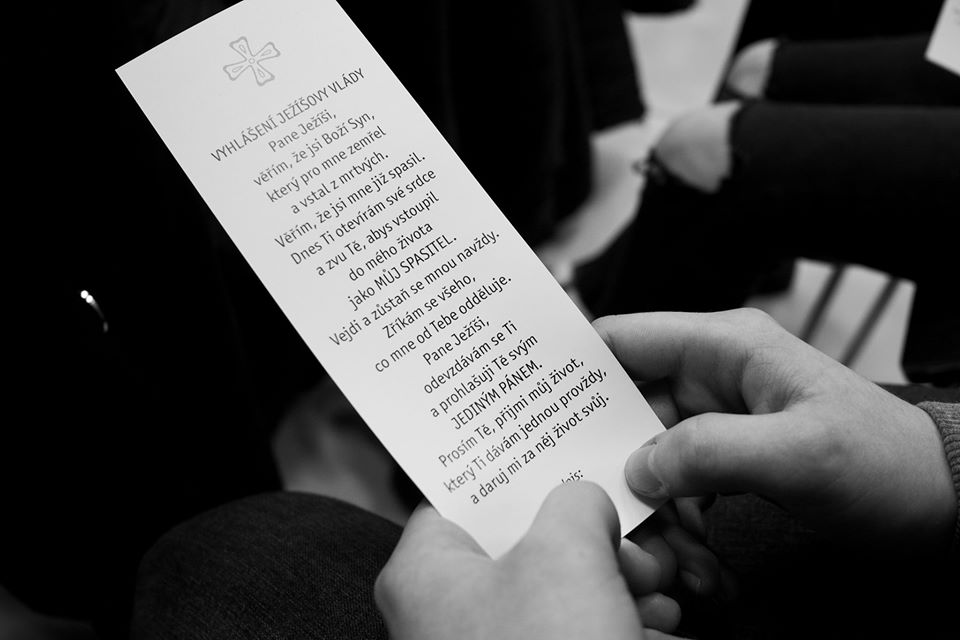 VYHLÁŠENÍ JEŽÍŠOVY VLÁDY
Pane Ježíši,
věřím, že jsi Boží Syn,
který pro mne zemřel
a vstal z mrtvých.
Věřím, že jsi mne již spasil.
Dnes Ti otevírám své srdce
a zvu Tě, abys vstoupil
do mého života
jako MŮJ SPASITEL.
Vejdi a zůstaň se mnou navždy.
Zříkám se všeho,
co mne od Tebe odděluje.
Pane Ježíši,
odevzdávám se Ti
a prohlašuji Tě svým
JEDINÝM PÁNEM.
Prosím Tě, přijmi můj život,
který Ti dávám jednou provždy,
a daruj mi za něj život svůj.